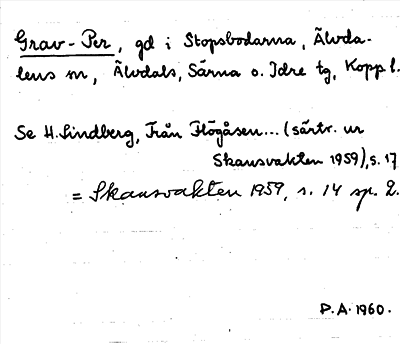 Grav-Per, gd i Stopsbodarna, Älvda-
lens sn, Älvdals, Särna o. Idre tg, Kopp l.
Se H. Lindberg, Från Högåsen... (särtr. ur
Skansvakten 1959), s. 17
= Skansvakten 1959, s. 14 sp. 2.
P.A. 1960.